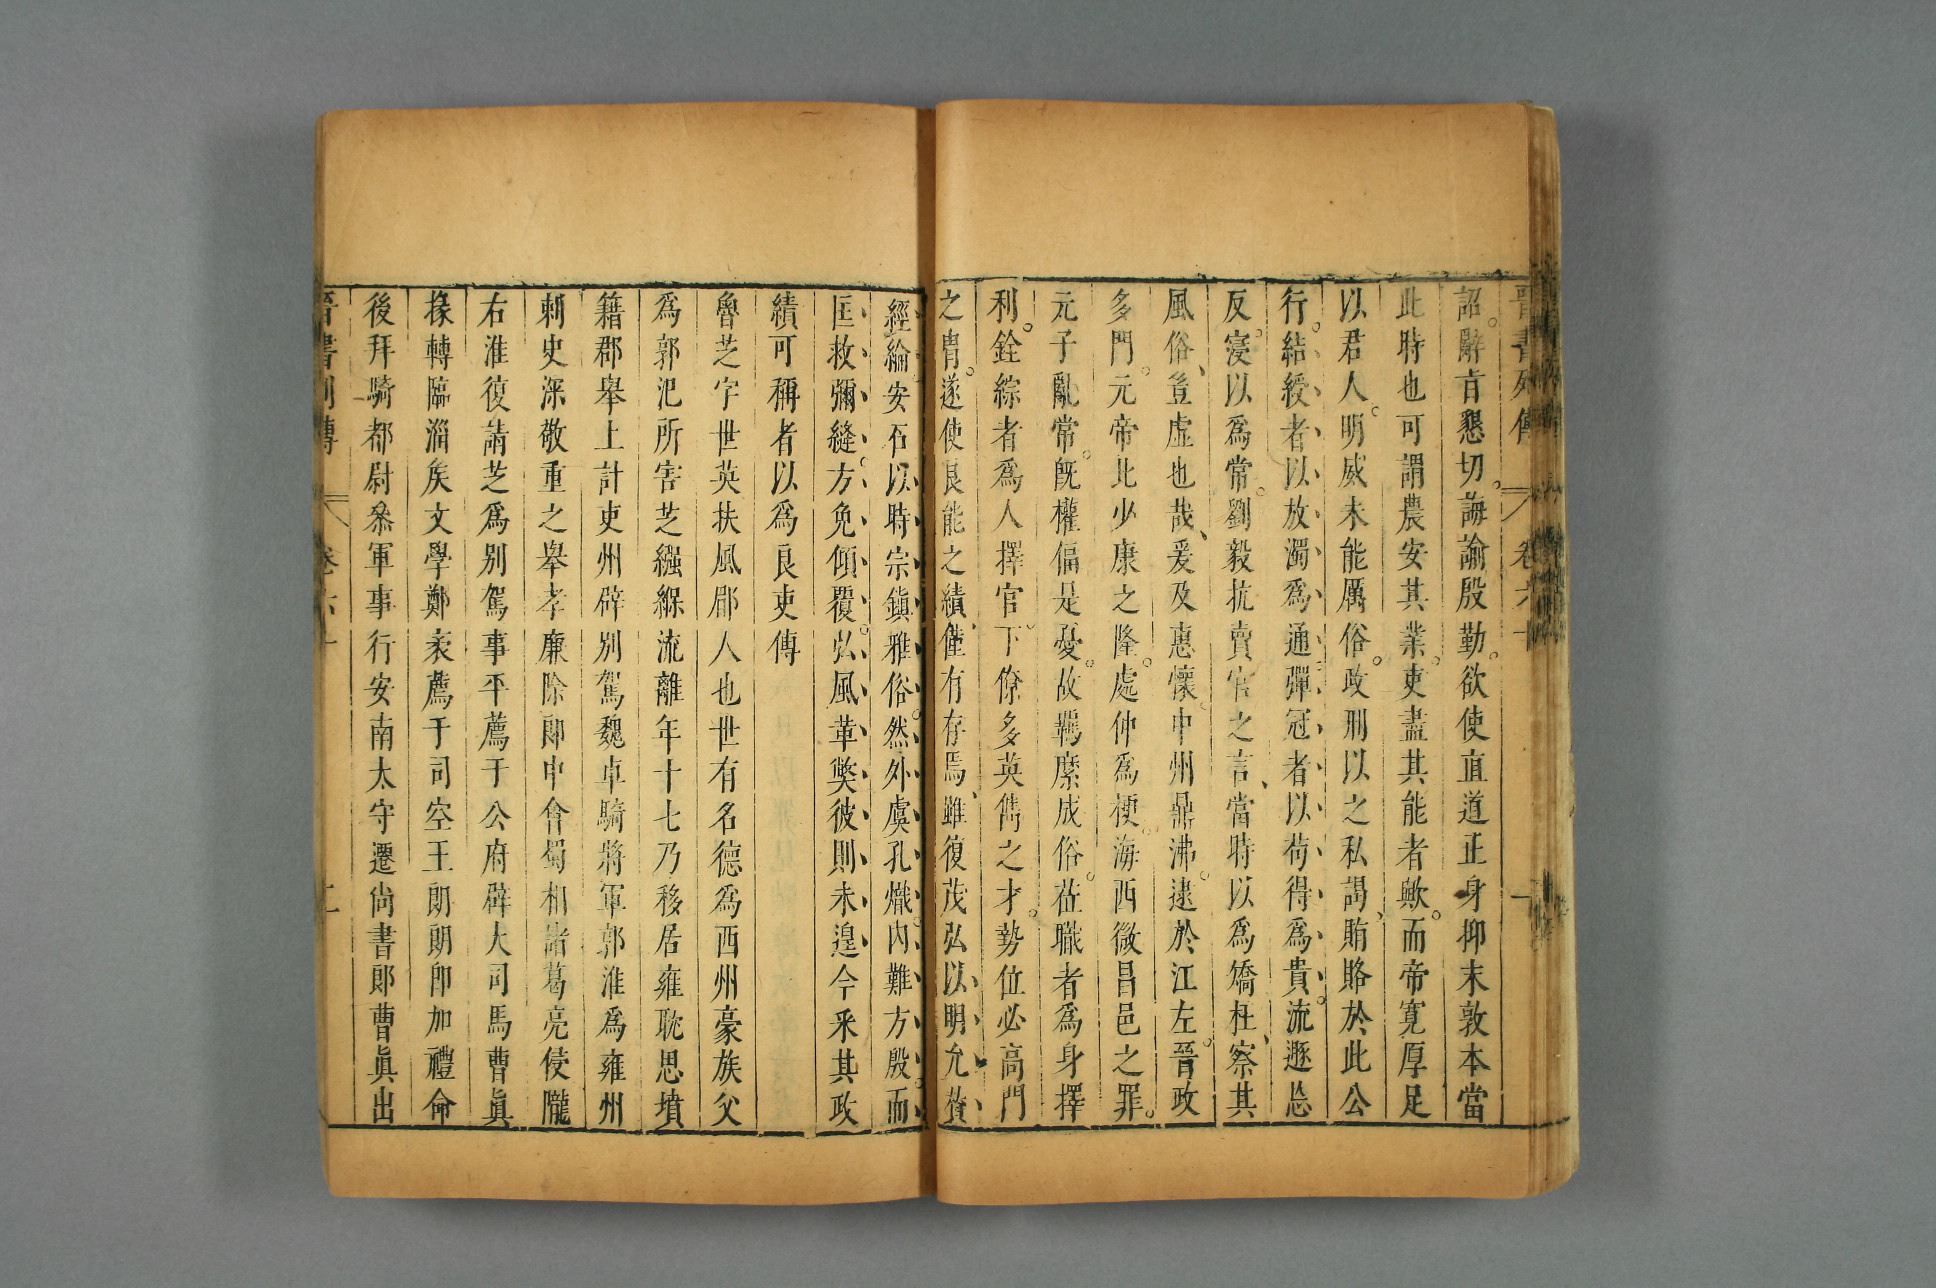 晉書列傳 卷六十 一
詔。辭旨懇切。誨諭殷勤。欲使直道正身抑末敦本當
此時也可謂農安其業。吏盡其能者歟。而帝寬厚足
以君人。明威未能厲俗。政刑以之私謁、賄賂於此公
行。結綬者以放濁爲通彈冠者以苟得爲貴。流遯忘
反。寖以爲常。劉毅抗賣官之言、當時以爲矯枉、察其
風俗、豈虛也哉、爰及惠懷。中州鼎沸。逮於江左。晉政
多門。元帝比少康之隆。處仲爲梗。海西微昌邑之罪。
元子亂常。旣權偪是憂。故羈縻成俗。莅職者爲身擇
利。銓綜者爲人擇官。下僚多英儁之才。勢位必高門
之胄。遂使良能之績、僅有存焉、雖復茂弘以明允贊
經綸。安石以時宗鎭雅俗。然外虞孔熾。內難方殷。而
匡救彌縫。方免傾覆。弘風革獘彼則未遑今采其政
績可稱者以爲良吏傳
魯芝字世英扶風郿人也世有名德爲西州豪族父
爲郭汜所害芝繈緥流離年十七乃移居雍耽思墳
籍郡舉上計吏州辟別駕魏車騎將軍郭淮爲雍州
刺史深敬重之舉孝廉除郎中會蜀相諸葛亮侵隴
右淮復請芝爲別駕事平薦于公府辟大司馬曹眞
掾轉臨淄矦文學鄭袤薦于司空王朗朗卽加禮命
後拜騎都尉參軍事行安南太守遷尚書郎曹眞出
晉書列傳 卷六十 二